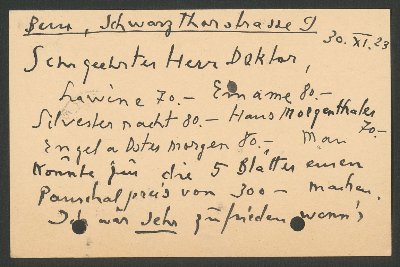 Bern, Schwarzthorstrasse 9
30. XI. 23
Sehr geehrter Herr Doktor,
Lawine 70.- Emame 80.-
Silvesternacht 80.- Hans Morgenthaler
70.-
Engel a Dotes Morgen 80.- Man
könnte für die 5 Blätter einen
Pauschalpreis von 300- machen.
Ich wär sehr zufrieden wenn's